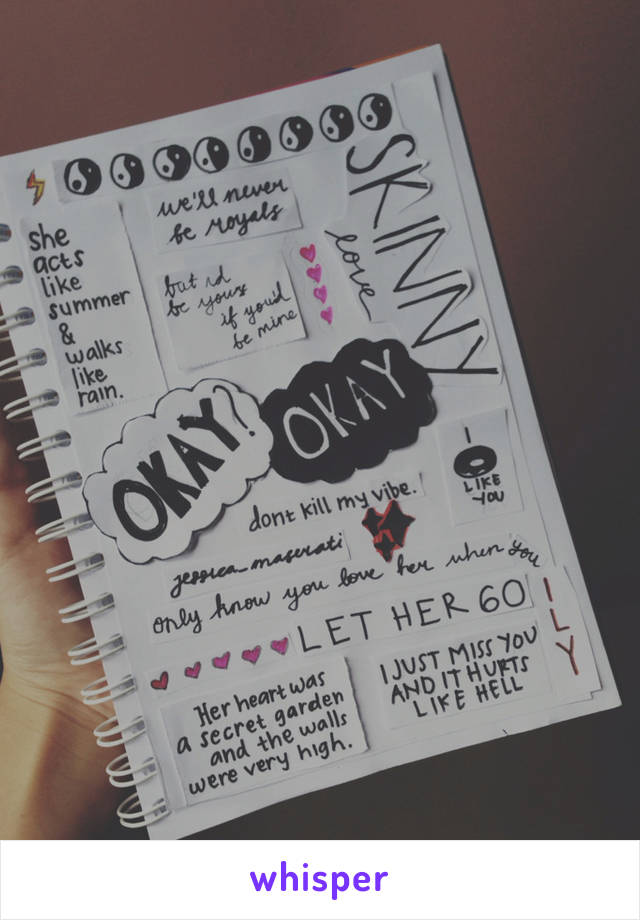 she
acts
like
summer
&
walks
like
rain.
we'll never
be royals
but id
be yours
if you'd
be mine
SKINNY
love
OKAY?
OKAY
I
LIKE
YOU
dont kill my vibe.
jessica_maserati
only know you love her when you
LET HER GO
ILY
Her heart was
a secret garden
and the walls
were very high.
I JUST MISS YOU
AND IT HURTS
LIKE HELL
whisper